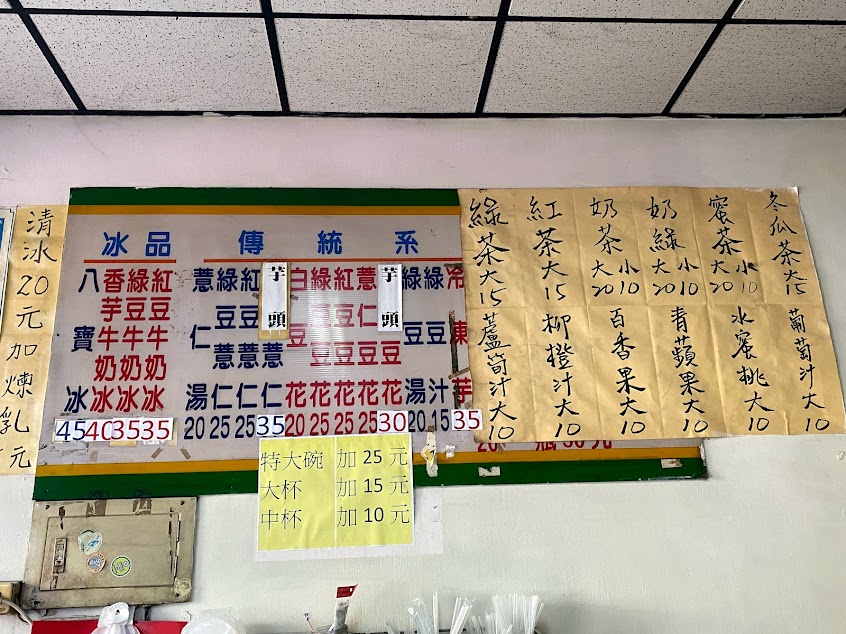 清冰20元加煉乳元
冰品
八寶冰45
香芋牛奶冰40
綠豆牛奶冰35
紅豆牛奶冰35
傳統系
薏仁湯20
綠豆薏仁25
紅豆薏仁25
芋頭35
白豆花20
綠豆豆花25
紅豆豆花25
薏仁豆花25
芋頭花30
綠豆湯20
綠豆汁15
冷凍芋35
綠茶大15
紅茶大15
奶茶大20小10
奶綠大20小10
蜜茶大20小10
冬瓜茶大15
蘆筍汁大10
柳橙汁大10
百香果大10
青蘋果大10
水蜜桃大10
葡萄汁大10
特大碗 加 25 元
大杯 加 15 元
中杯 加 10 元